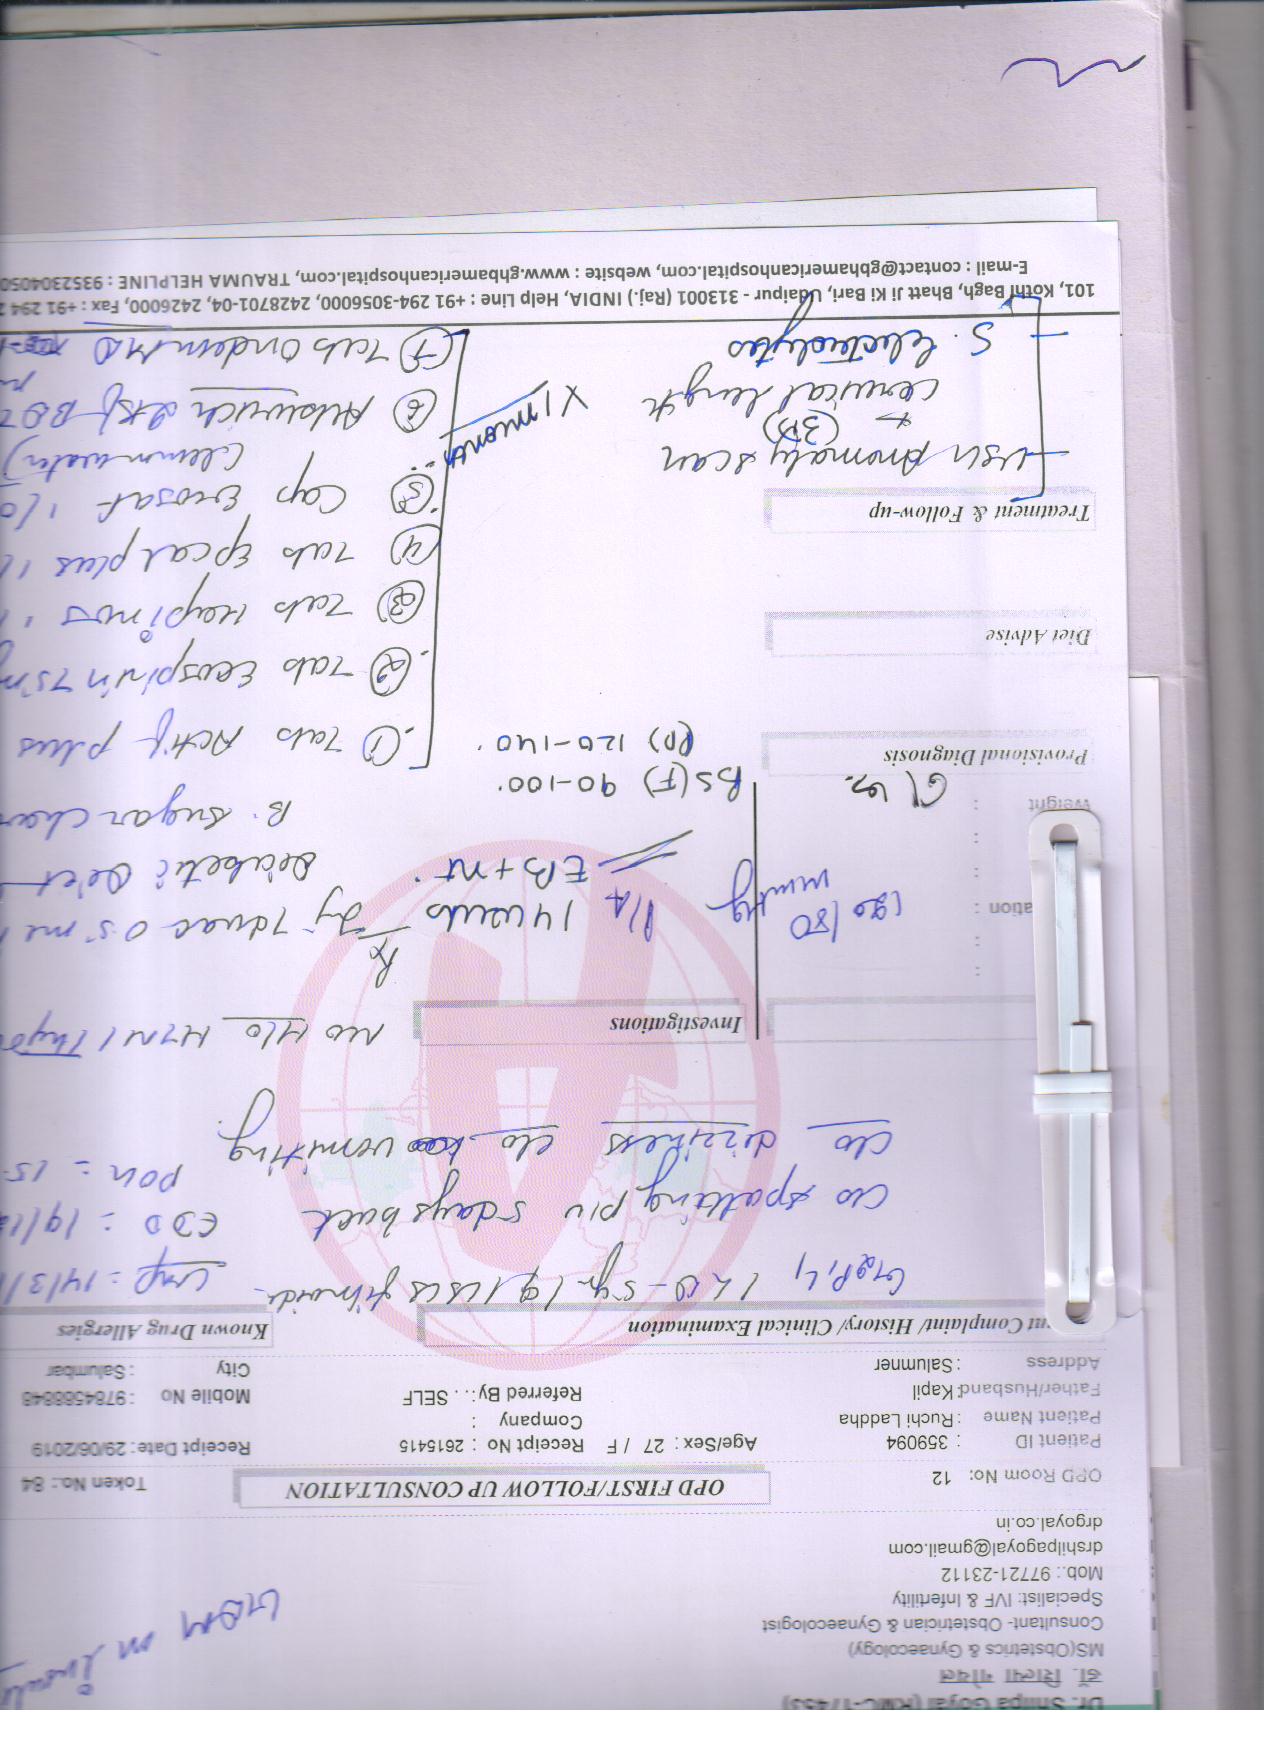 Dr. Shilpa Goyal (RMC-17453)
डॉ. शिल्पा गोयल
MS(Obstetrics & Gynaecology)
Consultant- Obstetrician & Gynaecologist
Specialist: IVF & Infertility
Mob.: 97721-23112
drshilpagoyal@gmail.com
drgoyal.co.in
GDM on
OPD Room No: 12
OPD FIRST/FOLLOW UP CONSULTATION
Token No.: 84
Patient ID : 359094
Age/Sex : 27 / F
Receipt No : 2615415
Receipt Date: 29/06/2019
Patient Name : Ruchi Laddha
Company :
Father/Husband: Kapil
Referred By: . . SELF
Mobile No : 9784588848
Address : Salumner
City : Salumbar
ent Complaint/ History/ Clinical Examination
Known Drug Allergies
G2P1L1 LCB - 5yr
LMP = 14/3/1
c/o spotting p/v 5 days back
EDD = 19/12
c/o dizziness c/o vomiting
POG = 15
Investigations
No H/o HTN / Thyro
Rx
ation :
120/80 mmHg
P/A 14 weeks
EB+nt.
Diabetic Diet
B. sugar char
Weight :
BS(F) 90-100.
(PP) 120-140.
Provisional Diagnosis
① Tab Actif plus
② Tab Ecosprin 75 m
Diet Advise
③ Tab
④ Tab Epcal plus 1
Treatment & Follow-up
⑤ Cap Evosaf 1/0
(lemon water)
- USG Anomaly scan
+ (3D)
cervical length
- S. Electrolytes
⑥ BD
⑦ Tab Ondem MD
X 1 month
101, Kothi Bagh, Bhatt Ji Ki Bari, Udaipur - 313001 (Raj.) INDIA, Help Line : +91 294-3056000, 2428701-04, 2426000, Fax : +91 294 2
E-mail : contact@gbhamericanhospital.com, website : www.gbhamericanhospital.com, TRAUMA HELPLINE : 9352304050